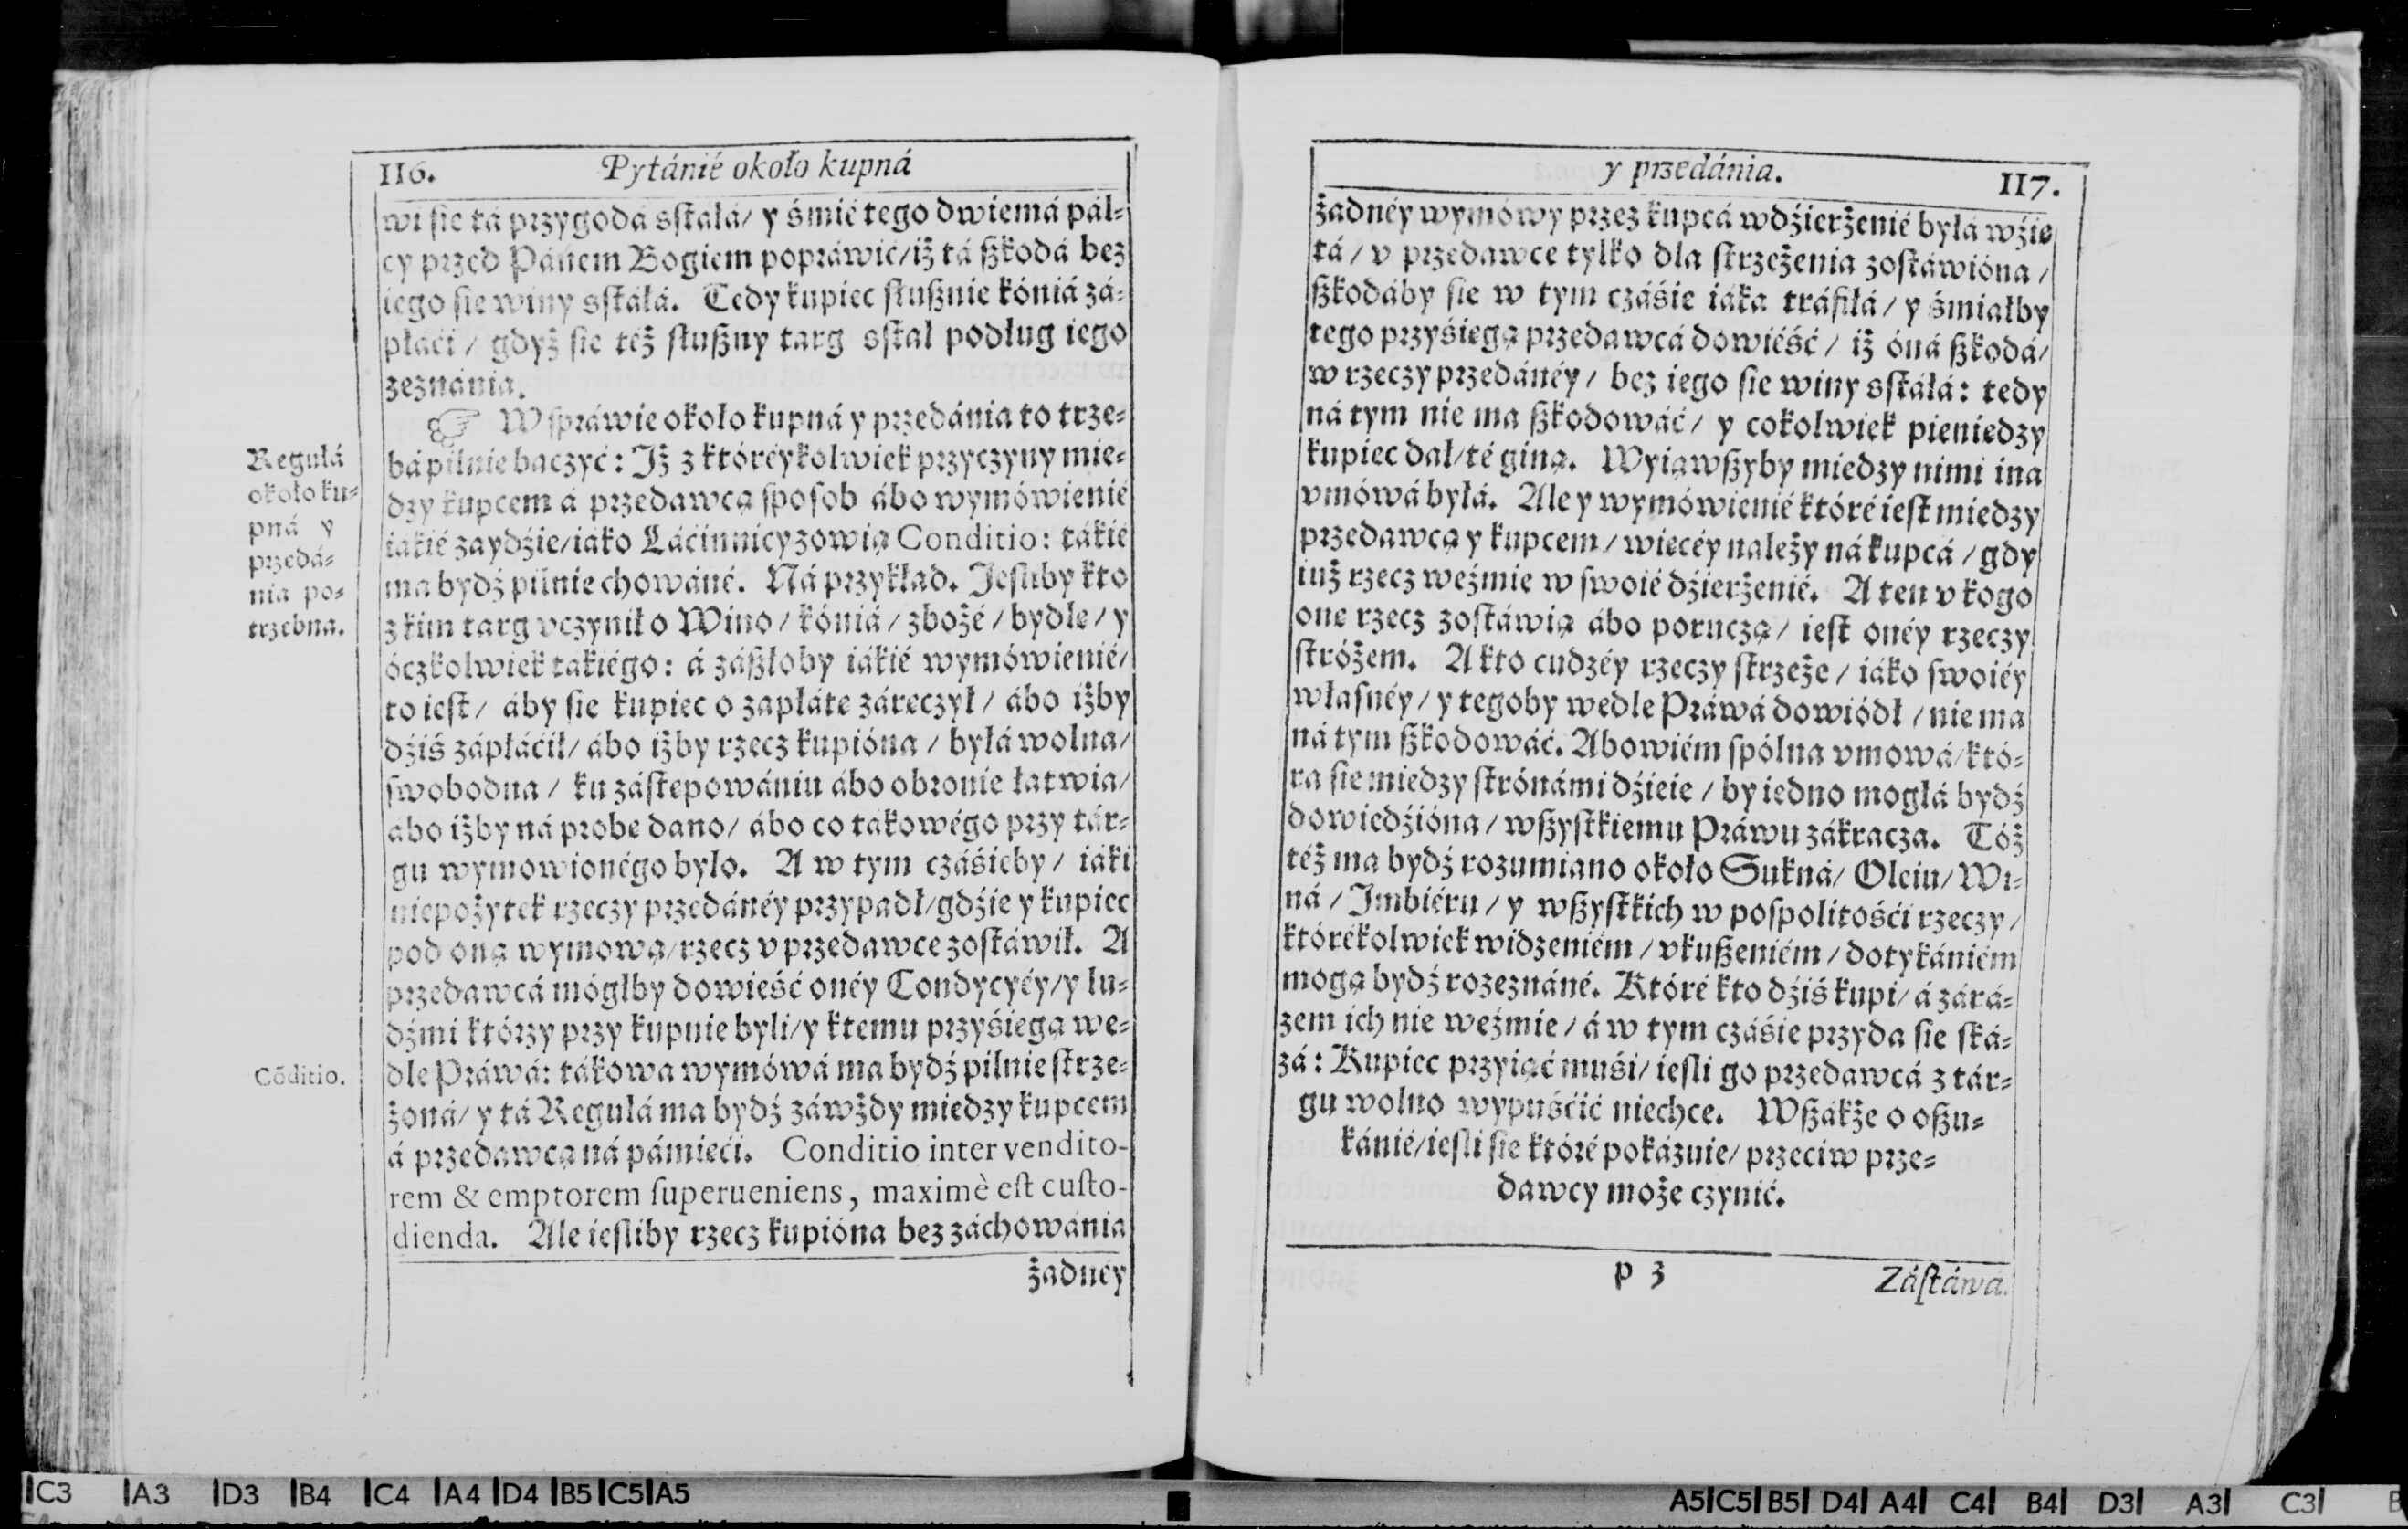 116. Pytánié około kupná
wi ſie tá przygodá sſtáłá/ y śmié tego dwiemá pál-
cy przed Pánem Bogiem popráwić/ iż tá ßkodá bez
iego ſie winy sſtáłá. Tedy kupiec słußnie kóniá zá-
płáći / gdyż ſie też słußny targ sſtał podług iego
zeznánia.
☞ W ſpráwie około kupná y przedánia to trze-
bá pilnie baczyć: Iż z któréykolwiek przyczyny mie-
dzy kupcem á przedawcą ſpoſob ábo wymówienié
iákié zaydźie/ iáko Łáćinnicy zowią Conditio: tákié
ma bydź pilnie chowáné. Ná przykład. Jeſliby kto
z kim targ vczynił o Wino / kóniá / zbożé / bydłe / y
óczkolwiek takiégo: á zászłoby iákié wymówienié/
to ieſt/ áby ſie kupiec o zapłáte záreczył / ábo iżby
dźiś zápłáćił/ ábo iżby rzecz kupióna / byłá wolna/
ſwobodna / ku záſtepowániu ábo obronie łatwia/
ábo iżby ná probe dano/ ábo co tákowégo przy tár-
gu wymowionégo bylo. A w tym czáśieby / iáki
niepożytek rzeczy przedánéy przypadł/ gdźie y kupiec
pod oną wymową/ rzecz v przedawce zoſtáwił. A
przedawcá mógłby dowieść onéy Condycyéy/ y lu-
dźmi którzy przy kupnie byli/ y ktemu przyśiegą we-
dle Práwá: tákowa wymówá ma bydź pilnie ſtrze-
żoná/ y tá Regułá ma bydź záwżdy miedzy kupcem
á przedawcą ná pámieći. Conditio inter vendito-
rem & emptorem ſuperueniens, maximè eſt cuſto-
dienda. Ale ieſliby rzecz kupióna bez záchowánia
żadnéy
Regułá
około ku-
pná y
przedá-
nia po-
trzebna.
Cõditio.
y przedánia. 117.
żadnéy wymówy przez kupcá w dźierżenié byłá wźie
tá / v przedawce tylko dla ſtrzeżenia zoſtáwióna /
ßkodáby ſie w tym czáśie iáka tráfiłá / y śmiałby
tego przyśiegą przedawcá dowiéść / iż óná ßkodá/
w rzeczy przedánéy / bez iego ſie winy sſtáłá: tedy
ná tym nie ma ßkodowáć / y cokolwiek pieniedzy
kupiec dał/ té giną. Wyiąwßyby miedzy nimi ina
vmówá byłá. Ale y wymówienié któré ieſt miedzy
przedawcą y kupcem / wiecéy należy ná kupcá / gdy
iuż rzecz weźmie w ſwoié dźierżenié. A ten v kogo
one rzecz zoſtáwią ábo poruczą / ieſt onéy rzeczy
ſtróżem. A kto cudzéy rzeczy ſtrzeże / iáko ſwoiéy
właſnéy / y tegoby wedle Práwá dowiódł / nie ma
ná tym ßkodowáć. Abowiém ſpólna vmowá/ któ-
ra ſie miedzy ſtrónámi dźieie / by iedno mogłá bydź
dowiedźióna / wßyſtkiemu Práwu zákracza. Tóż
téż ma bydź rozumiano około Sukná/ Oleiu/ Wi-
ná / Imbiéru / y wßyſtkich w poſpolitośći rzeczy /
którékolwiek widzeniém / vkußeniém / dotykániém
mogą bydź rozeznáné. Któré kto dźiś kupi/ á zárá-
zem ich nie weźmie / á w tym czáśie przyda ſie ſká-
zá: Kupiec przyiąć muśi/ ieſli go przedawcá z tár-
gu wolno wypuśćić niechce. Wßákże o oßu-
kánié/ ieſli ſie któré pokázuie/ przeciw prze-
dawcy może czynić.
p 3 Záſtáwá.
|C3 |A3 |D3 |B4 |C4 |A4 |D4 |B5 |C5 |A5
A5| C5| B5| D4| A4| C4| B4| D3| A3| C3| B